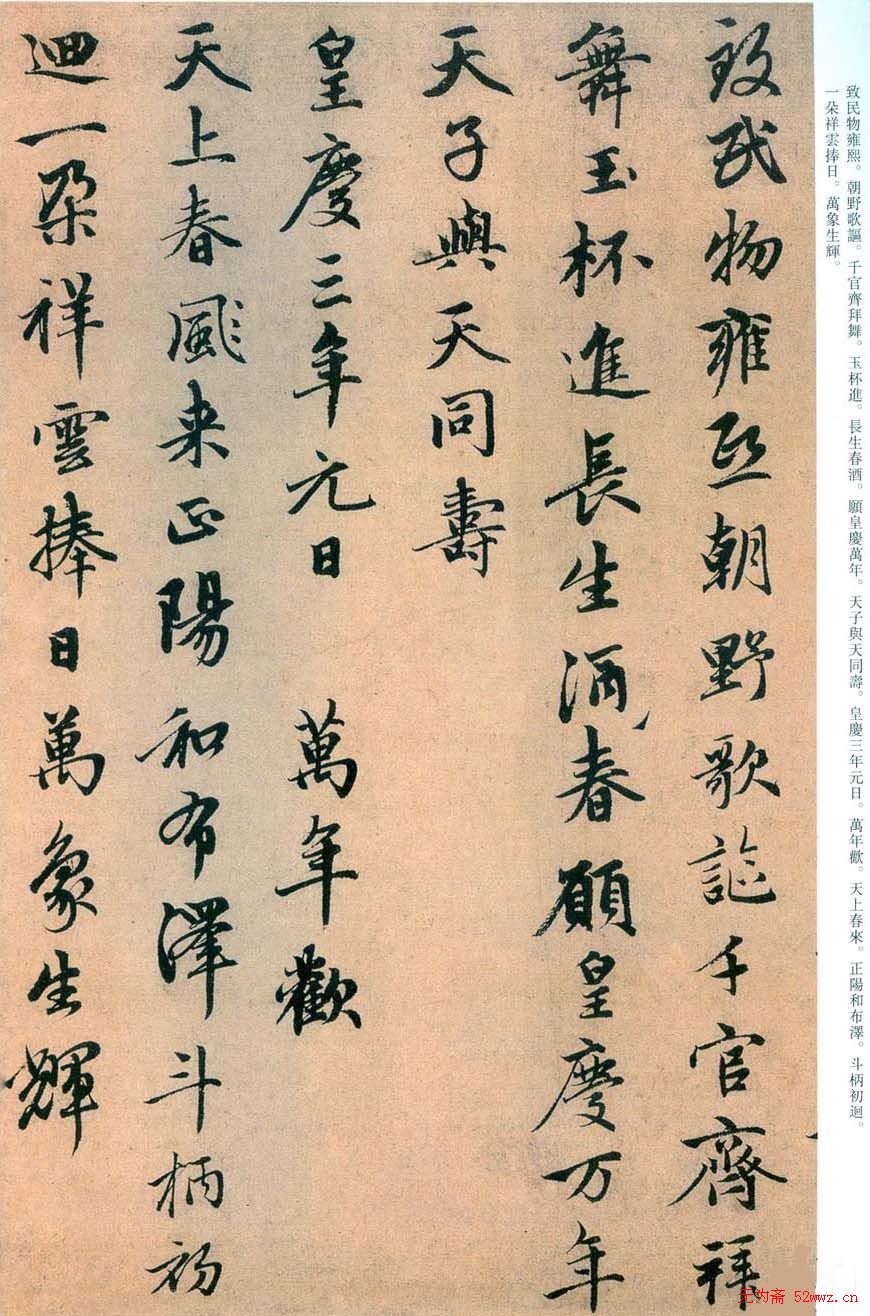 致民物雍熙。朝野歌謳。千官齊拜舞。玉杯進。長生春酒。願皇慶萬年。天子與天同壽。皇慶三年元日。萬年歡。天上春來。正陽和布澤。斗柄初迴。
一朵祥雲捧日。萬象生輝。
致民物雍熙朝野歌謳千官齊拜
舞玉杯進長生酒春願皇慶万年
天子與天同壽
皇慶三年元日 萬年歡
天上春風来正陽和布澤斗柄初
迴一朶祥雲捧日萬象生輝
无为斋 52wwz.cn